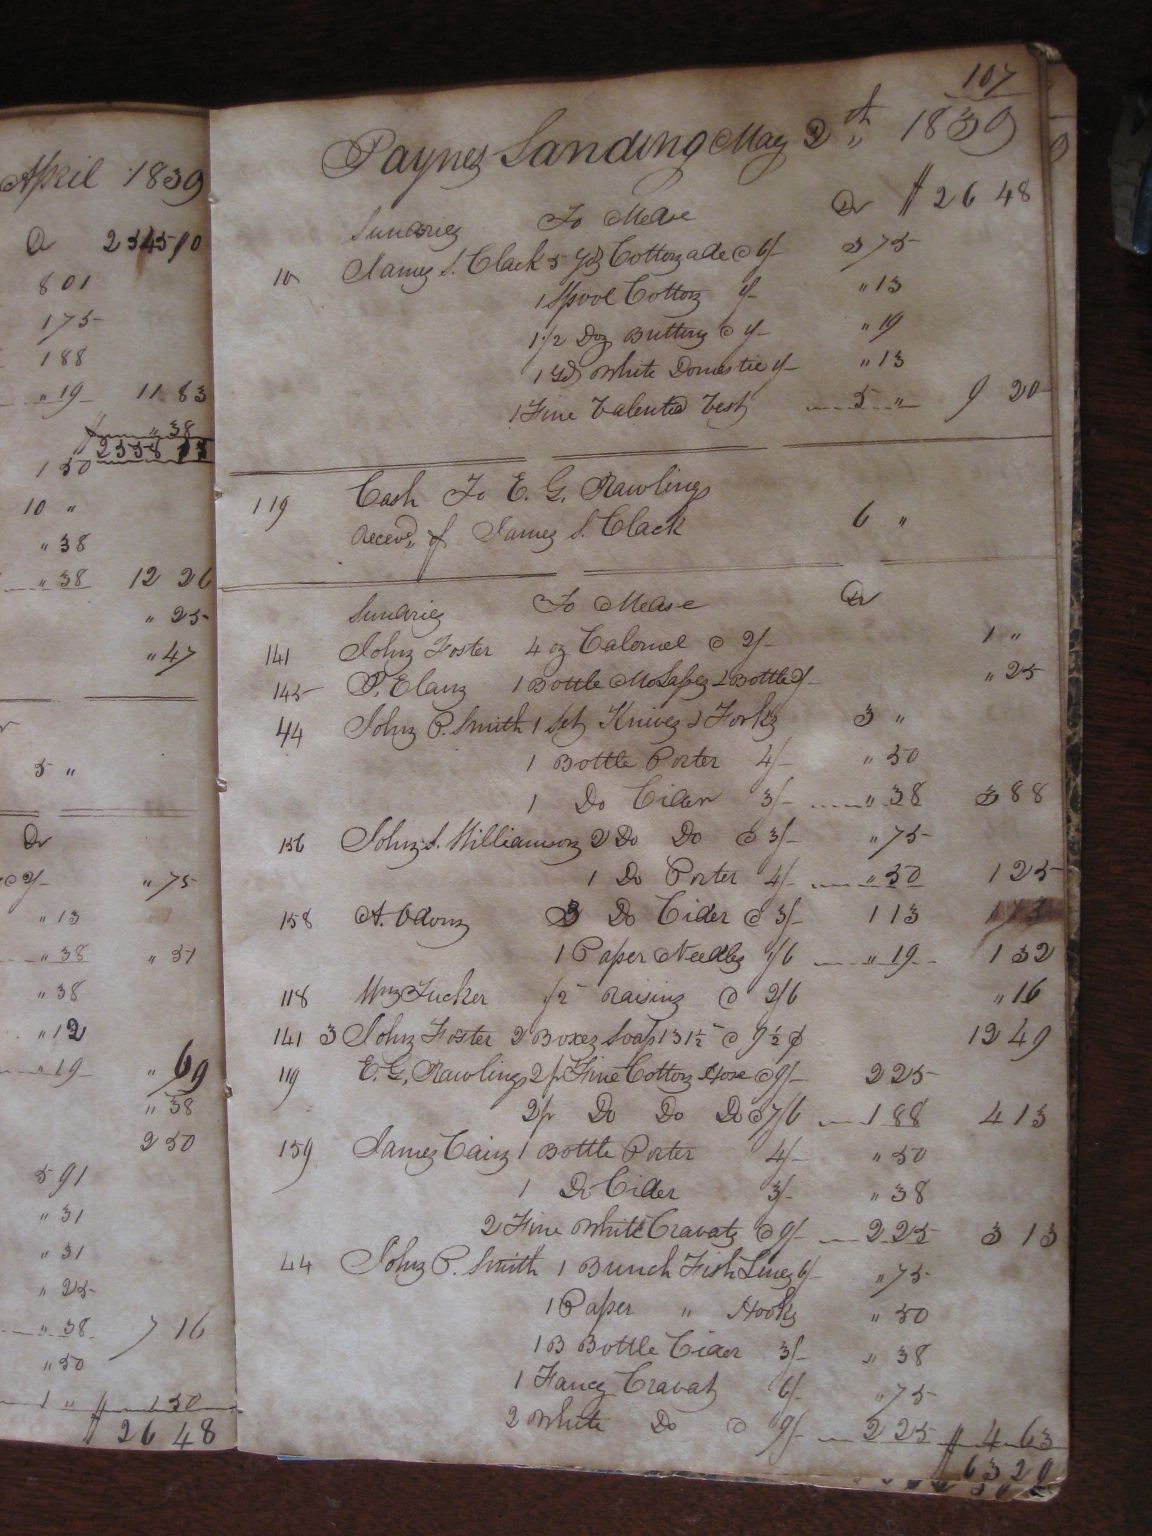 April 1839
Dr 2345 10
8 01
1 75
1 88
" 19 11 83
" 38
1 50
10 "
" 38
" 38 12 26
" 25
" 47
5 "
Dr
@ 2/- " 75
" 13
" 38 " 51
" 38
" 12
" 19 " 69
" 38
2 50
5 91
" 31
" 31
" 25
" 38 7 16
" 50
1 " $ 1 50
$ 26 48
107
Paynes Landing May 2th " 1839
Sundries To Mdse Dr $ 26 48
10 James S. Clack 5 yds Cottonade @ 6/- 3 75
1 Spool Cotton /- " 13
1 1/2 Doz Buttons @ /- " 19
1 yd White Domestic /- " 13
1 Fine Valentia Vest 5 " 9 20
119 Cash To E. G. Rawlings
Receivd, of James S. Clack 6 "
Sundries To Mdse Dr
141 John Foster 4 oz Calomel @ 2/- 1 "
145 P. Elam 1 Bottle Molasses & Bottle 2/- " 25
44 John P. Smith 1 Set Knives & Forks 3 "
1 Bottle Porter 4/- " 50
1 Do Cider 3/- " 38 3 88
156 John S. Williamson 2 Do Do @ 3/- " 75
1 Do Porter 4/- " 50 1 25
158 A. Odom 3 Do Cider @ 3/- 1 13
1 Paper Needles 1/6 " 19 1 32
118 Wm Tucker 1/2 Raisins @ 2/6 " 16
141 3 John Foster 2 Boxes Soap 131 1/2 @ 9 1/2 ¢ 12 49
119 E. G. Rawlings 2 pr Fine Cotton Hose @ 9/- 2 25
2 pr Do Do Do @ 7/6 1 88 4 13
159 James Cain 1 Bottle Porter 4/- " 50
1 Do Cider 3/- " 38
2 Fine White Cravats @ 9/- 2 25 3 13
44 John P. Smith 1 Bunch Fish Lines 6/- " 75
1 Paper " Hooks " 50
1 B Bottle Cider 3/- " 38
1 Fancy Cravat 6/- " 75
2 White Do @ 9/- 2 25 $ 4 63
$ 63 29